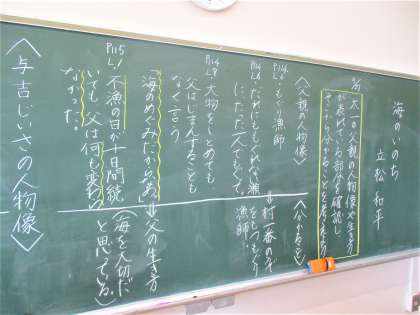 海のいのち
立松 和平
太一の父親の人物像や生き方
が表れている部分を確認し、
そこから分かることを考えよう
〈父親の人物像〉
・もぐり漁師
P114
L6
・だれにももぐれない瀬
に、たった一人でもぐって、
P114
L8
大物をしとめても
父はじまんすることも
なく言う
「海のめぐみだからなあ」
P115
L1
不漁の日が十日間続
いても、父は何も変わら
なかった。
〈分かること〉
⇒村一番のもぐり
漁師。
⇒父の生き方
(海を大切だ
と思っている。)
〈与吉じいさの人物像〉